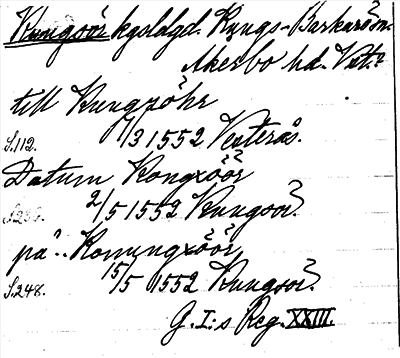 Kungsör kgsldgd. Kungs-Barkarö sn.
Åkerbo hd. Vstm.
till Kungzöhr
S. 112. 7/3 1552 Vesterås.
Datum Kongxöör
2/5 1552 Kungsör.
på .. Konungxöör
S. 248. 15/5 1552 Kungsör.
G. I:s Reg. XXIII.